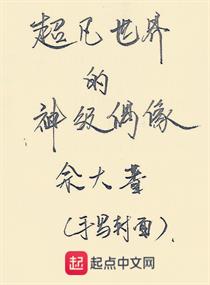 超凡世界
的
神级偶像
余大薯
(手写封面).
起 起点中文网